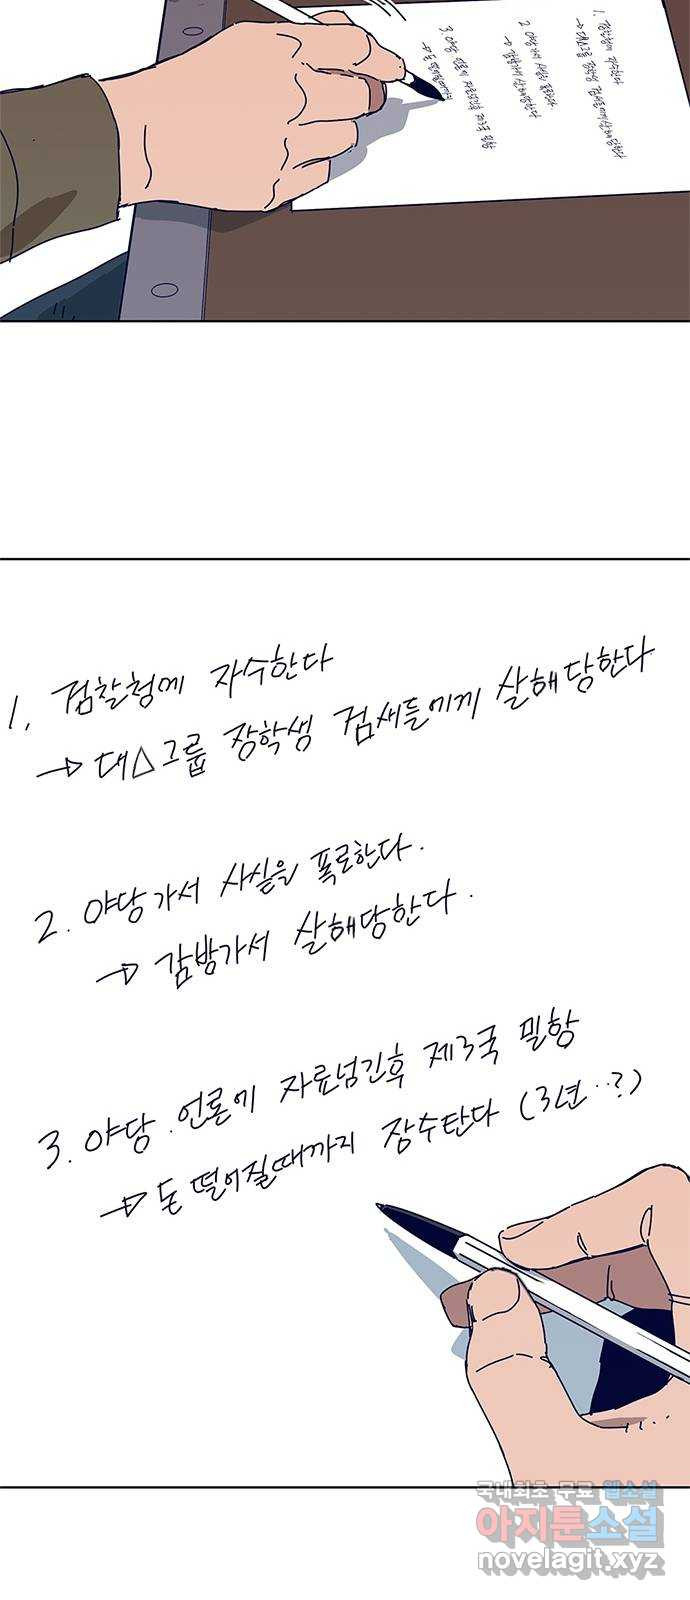 1. 검찰청에 자수한다
→ 대△그룹 장학생 검새들에게 살해당한다
2. 야당가서 사실을 폭로한다.
→ 감방가서 살해당한다.
3. 야당. 언론에 자료넘긴후 제3국 밀항
→ 돈 떨어질때까지 잠수탄다 (3년..?)
국내최초 무료 웹소설
아지툰소설
novelagit.xyz